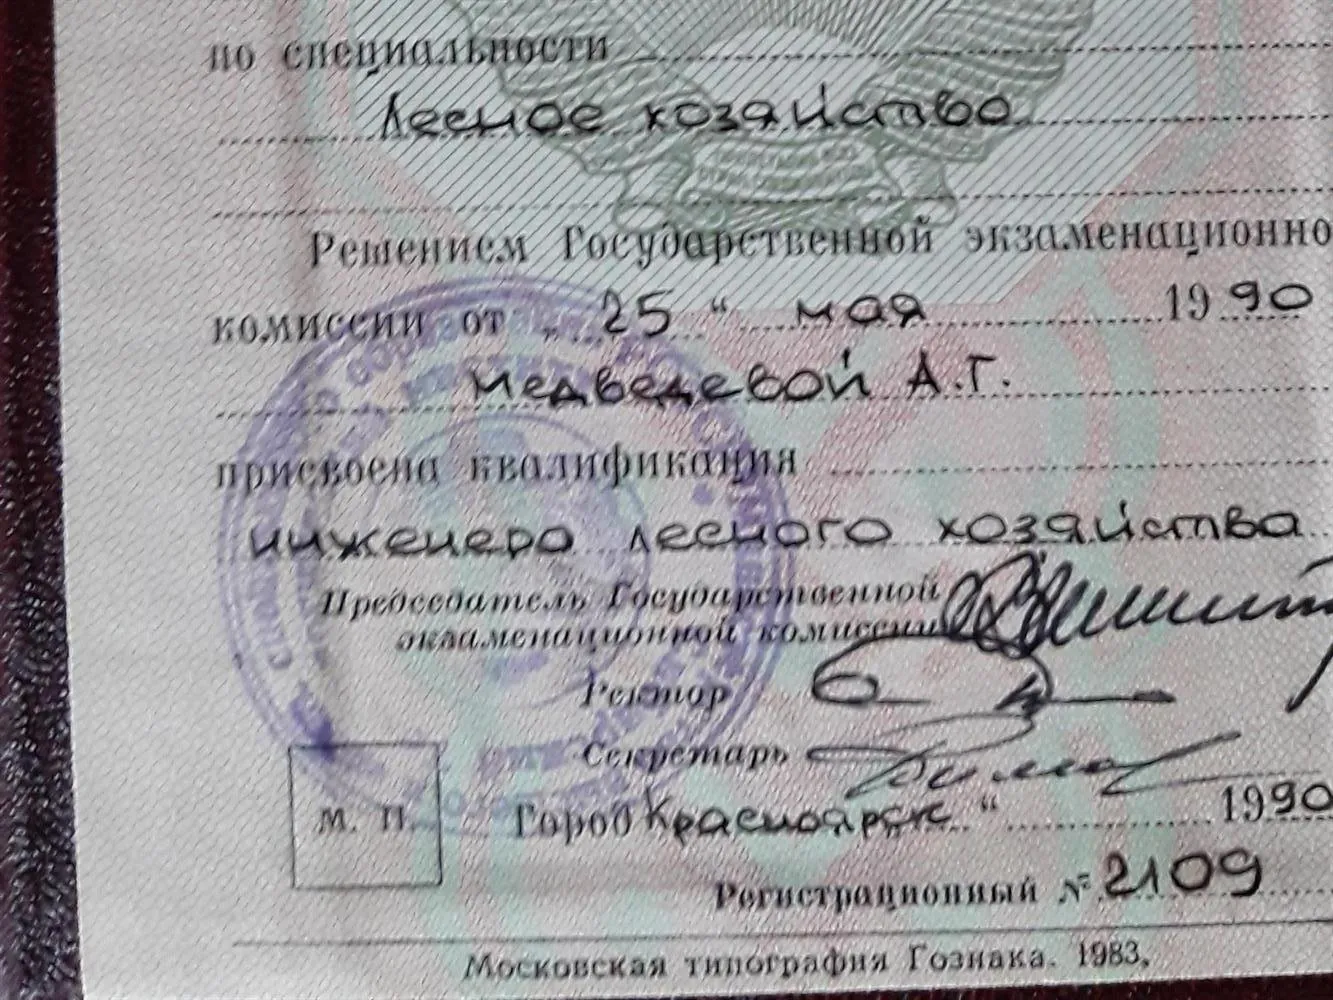 по специальности
Лесное хозяйство
Решением Государственной экзаменационно
комиссии от „ 25 “ мая 19 90
Медведевой А.Г.
присвоена квалификация
инженера лесного хозяйства
Председатель Государственной
экзаменационной комиссии
Ректор
Секретарь
М. П.
Город Красноярск “ 1990
Регистрационный № 2109
Московская типография Гознака. 1983.